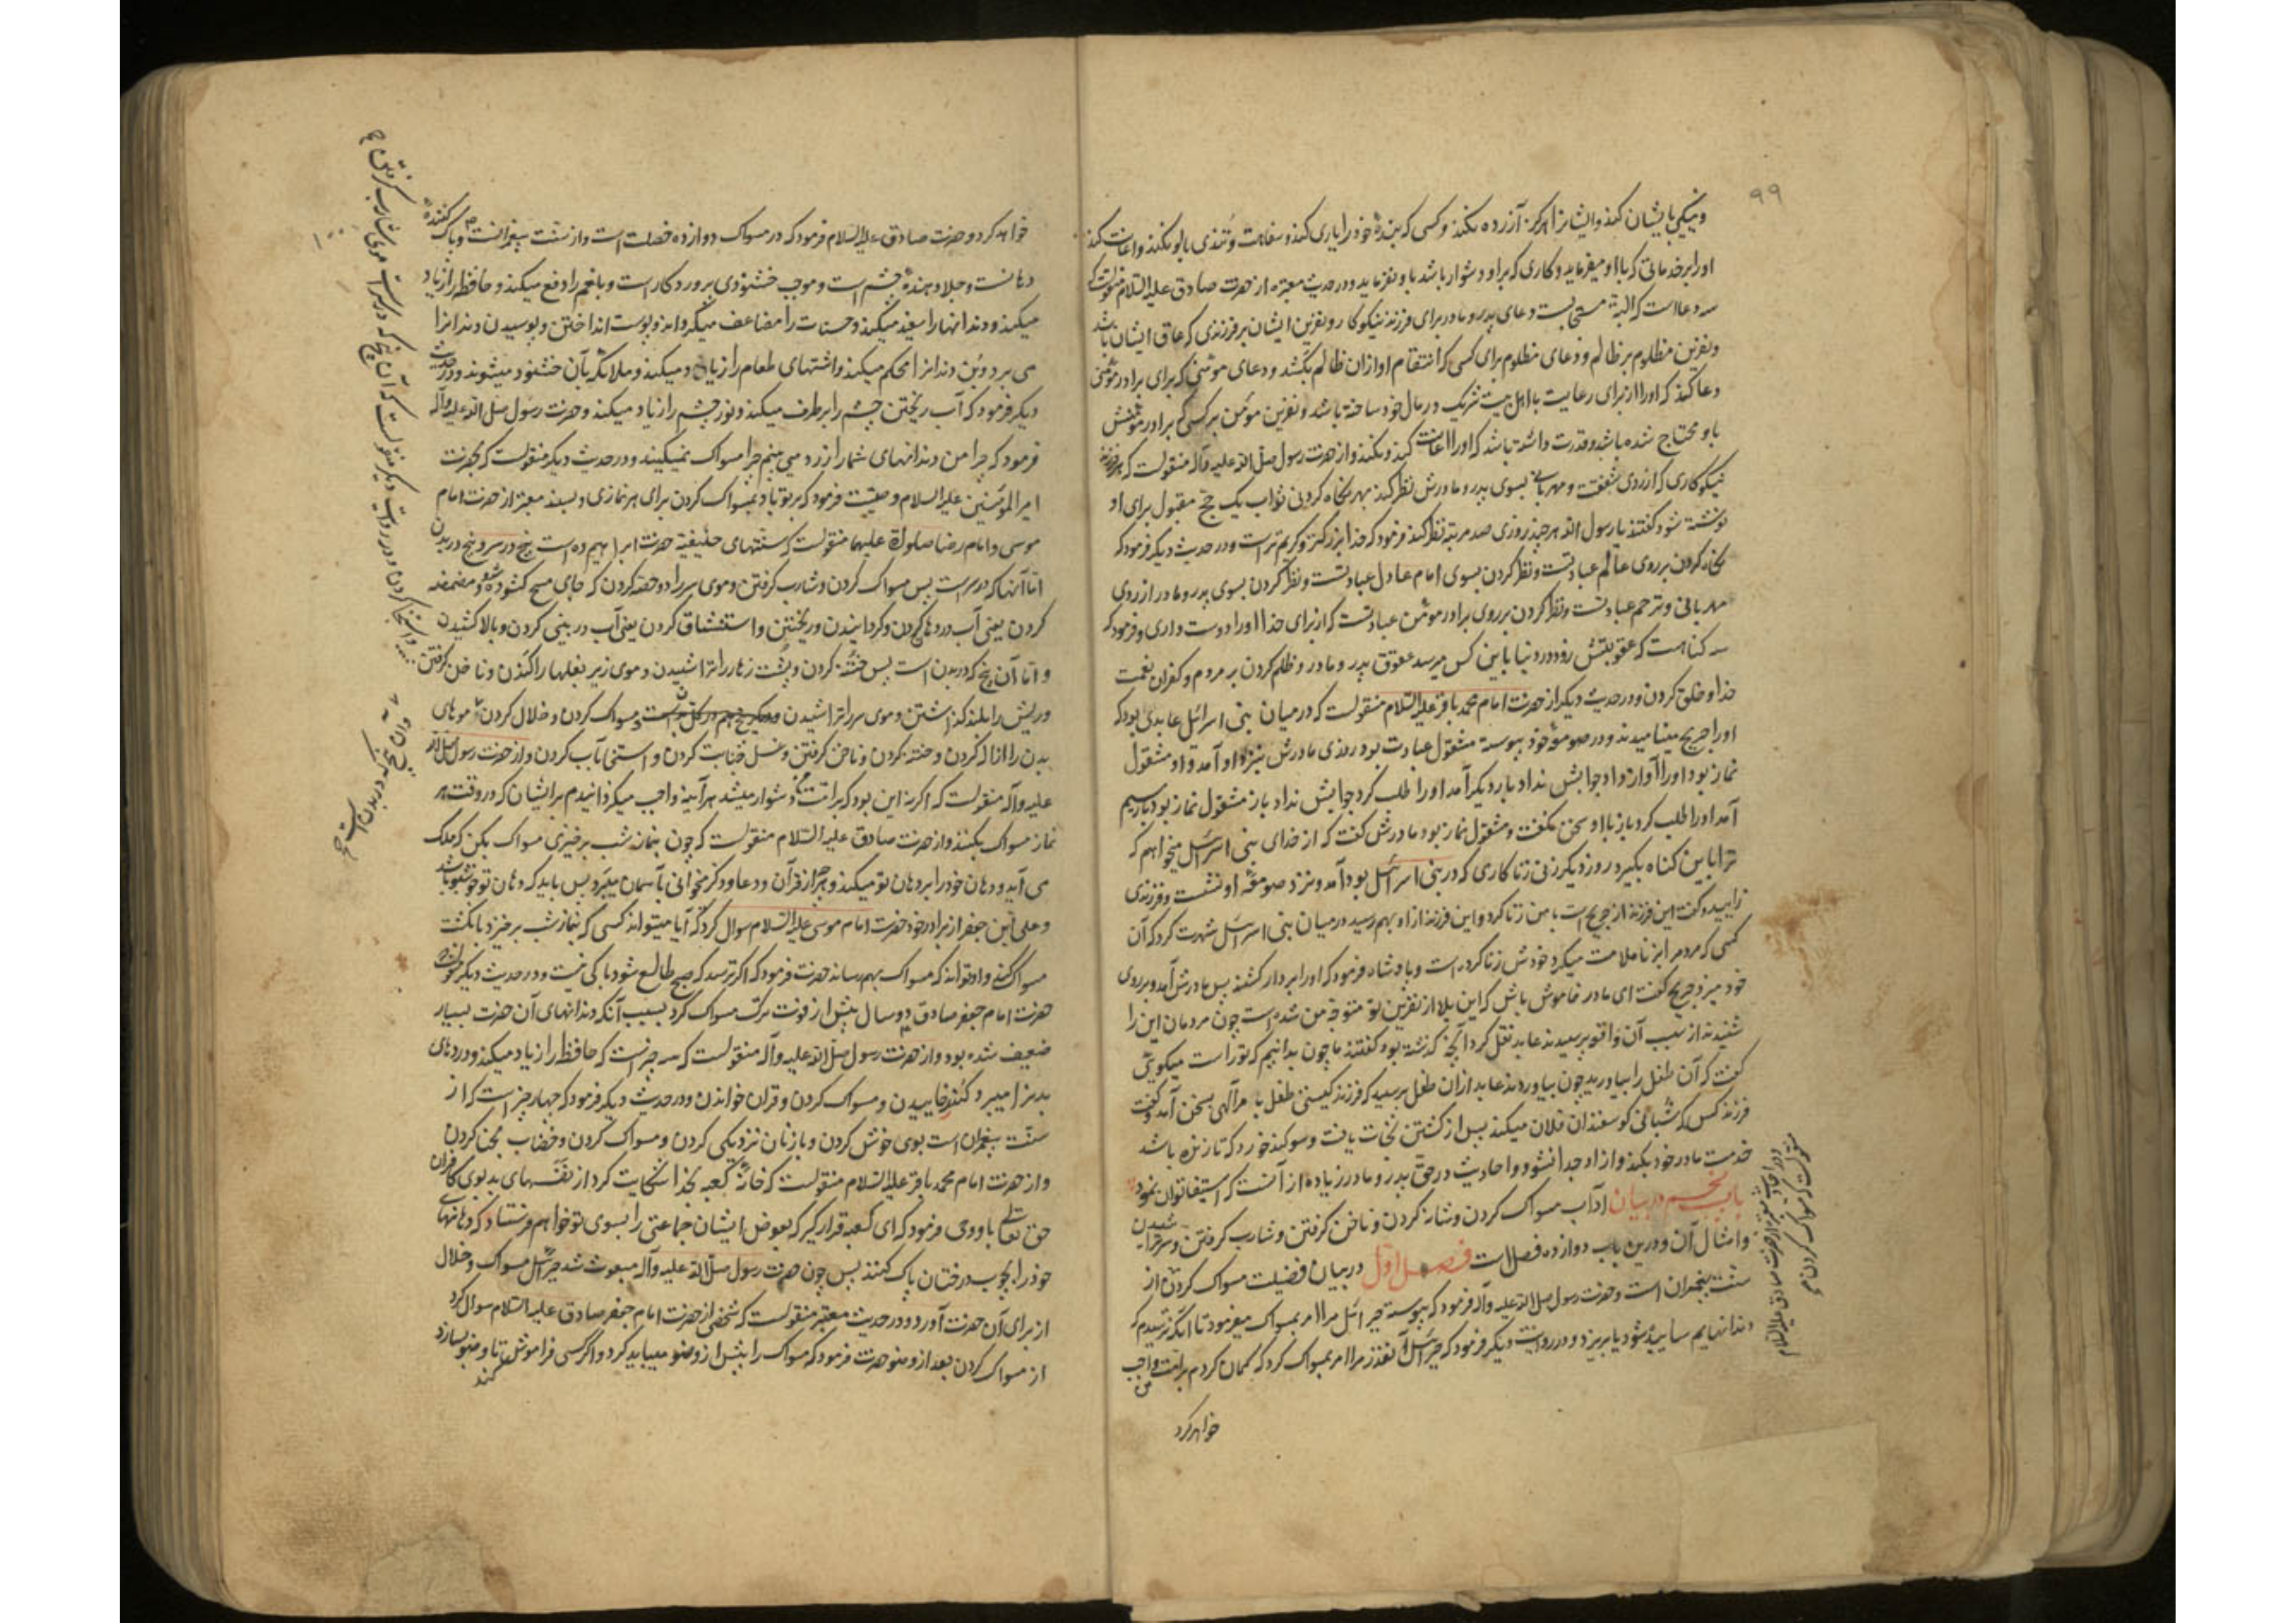 ۹۹
و نیکی با ایشان کند و ایشانرا هرگز آزرده نکند و کسی که بندهٔ خود را یاری کند و سفاهت و تندی با او نکند و اعانت کند
او را بر خدماتی که با او میفرماید و کاری که بر او دشوار باشد باو نفرماید و در حدیث معتبر از حضرت صادق علیه السلام منقولست که
سه دعا است که البته مستجابست دعای پدر و مادر برای فرزند نیکوکار و نفرین ایشان بر فرزندی که عاق ایشان باشد
و نفرین مظلوم بر ظالم و دعای مظلوم برای کسی که انتقام او از ان ظالم بکشد و دعای مؤمنی که برای برادر مؤمنی
دعا کند که او را از برای رعایت ما اهل بیت شریک در مال خود ساخته باشد و نفرین مؤمن بر کسی که برادر مؤمنش
باو محتاج شده باشد و قدرت داشته باشد که او را اعانت کند و نکند و از حضرت رسول صلی الله علیه و آله منقولست که هر فرزند
نیکوکاری که از روی شفقت و مهربانی بسوی پدر و مادرش نظر کند بهر نگاه کردنی ثواب یک حج مقبول برای او
نوشته شود گفتند یا رسول الله هر چند روزی صد مرتبه نظر کند فرمود که خدا بزرگتر و کریم تر است و در حدیث دیگر فرمود که
نگاه کردن بر روی عالم عبادتست و نظر کردن بسوی امام عادل عبادتست و نظر کردن بسوی پدر و مادر از روی
مهربانی و ترحم عبادتست و نظر کردن بر روی برادر مؤمن عبادتست که از برای خدا او را دوست داری و فرمود که
سه گناهست که عقوبتش زود در دنیا باین کس میرسد عقوق پدر و مادر و ظلم کردن بر مردم و کفران نعمت
خدا و خلق کردن و در حدیث دیگر از حضرت امام محمد باقر علیه السلام منقولست که در میان بنی اسرائیل عابدی بود که
او را جریح مینامیدند و در صومعهٔ خود پیوسته مشغول عبادت بود روزی مادرش بنزد او آمد و او مشغول
نماز بود او را آواز داد جوابش نداد بار دیگر آمد او را طلب کرد جوابش نداد باز مشغول نماز بود بار سیم
آمد او را طلب کرد باز با او سخن نگفت و مشغول نماز بود مادرش گفت که از خدای بنی اسرائیل میخواهم که
ترا باین گناه بگیرد روز دیگر زنی زناکاری که در بنی اسرائیل بود آمد و نزد صومعهٔ او نشست و فرزندی
زایید و گفت این فرزند از جریح است با من زنا کرد و این فرزند از او بهم رسید در میان بنی اسرائیل شهرت کرد که آن
کسی که مردم را بزنا ملامت میکرد خودش زنا کرده است و پادشاه فرمود که او را بردار کشند پس مادرش آمد و بر روی
خود میزد جریح گفت ای مادر خاموش باش که این بلا از نفرین تو متوجه من شده است چون مردمان این را
شنیدند از سبب آن واقعه پرسیدند عابد نقل کرد آنچه گذشته بود گفتند ما چون بدانیم که تو راست میگویی
گفت که آن طفل را بیاورید چون بیاوردند عابد از ان طفل پرسید که فرزند کیستی طفل بامر الهی بسخن آمد و گفت
فرزند کس که شبانی گوسفندان فلان میکند پس از کشتن نجات یافت و سوگند خورد که تا زنده باشد
خدمت مادر خود بکند و از او جدا نشود و احادیث در حق پدر و مادر زیاده از آنست که استیفا توان نمود
باب پنجم در بیان آداب مسواک کردن و شانه کردن و ناخن گرفتن و شارب گرفتن و سر تراشیدن
و امثال آن و درین باب دوازده فصل است فصل اول در بیان فضیلت مسواک کردن از
سنت پیغمبران است و حضرت رسول صلی الله علیه و آله فرمود که پیوسته جبرائیل مرا امر بمسواک میفرمود تا آنکه ترسیدم که
دندانهایم ساییده شود یا بریزد و در روایت دیگر فرمود که جبرائیل آنقدر مرا امر بمسواک کرد که گمان کردم بر امت من واجب
خواهد کرد
در احادیث معتبر از حضرت صادق علیه السلام
منقولست که مسواک کردن
خواهد کرد و حضرت صادق علیه السلام فرمود که در مسواک دوازده خصلت است و از سنت پیغمبرانست و پاک کنندهٔ
دهانست و جلا دهندهٔ چشم است و موجب خشنودی پروردگار است و بلغم را دفع میکند و حافظه را زیاد
میکند و دندانها را سفید میکند و حسنات را مضاعف میگرداند و پوست انداختن و پوسیدن دندانرا
می برد و بن دندانرا محکم میکند و اشتهای طعام را زیاد میکند و ملائکه بآن خشنود میشوند و در حدیث
دیگر فرمود که آب ریختن چشم را برطرف میکند و نور چشم را زیاد میکند و حضرت رسول صلی الله علیه و آله
فرمود که چرا من دندانهای شما را زرد می بینم چرا مسواک نمیکنید و در حدیث دیگر منقولست که بحضرت
امیر المؤمنین علیه السلام وصیت فرمود که بر تو باد بمسواک کردن برای هر نمازی و بسند معتبر از حضرت امام
موسی و امام رضا صلوات علیهما منقولست که سنتهای حنیفیه حضرت ابراهیم ده است پنج در سر و پنج در بدن
اما آنها که در سر است پس مسواک کردن و شارب گرفتن و موی سر را دو حصه کردن که جای مسح گشوده شود و مضمضه
کردن یعنی آب در دهان کردن و گردانیدن و ریختن و استنشاق کردن یعنی آب در بینی کردن و بالا کشیدن
و اما آن پنج که در بدن است پس ختنه کردن و پشت زهار را تراشیدن و موی زیر بغلها را کندن و ناخن گرفتن
و ریش را بلند گذاشتن و موی سر را تراشیدن و مسواک کردن و خلال کردن موهای
بدن را ازاله کردن و ختنه کردن و ناخن گرفتن و غسل جنابت کردن و استنجا بآب کردن و از حضرت رسول صلی الله
علیه و آله منقولست که اگر نه این بود که بر امت من دشوار میشد هر آینه واجب میگردانیدم بر ایشان که در وقت هر
نماز مسواک بکنند و از حضرت صادق علیه السلام منقولست که چون بنماز شب برخیزی مسواک بکن که ملک
می آید و دهان خود را بر دهان تو میگذارد و هر چه از قرآن و دعا و ذکر میخوانی بآسمان میبرد پس باید که دهان تو خوشبو باشد
و علی ابن جعفر از برادر خود حضرت امام موسی علیه السلام سوال کرد که آیا میتواند کسی که بنماز شب برخیزد بانگشت
مسواک کند و او تواند که مسواک بهم رساند حضرت فرمود که اگر ترسد که صبح طالع شود باکی نیست و در حدیث دیگر منقولست
حضرت امام جعفر صادق ع دو سال پیش از فوت ترک مسواک کرد بسبب آنکه دندانهای آن حضرت بسیار
ضعیف شده بود و از حضرت رسول صلی الله علیه و آله منقولست که سه چیز است که حافظه را زیاد میکند و دردهای
بدنرا میبرد کندر خاییدن و مسواک کردن و قران خواندن و در حدیث دیگر فرمود که چهار چیز است که از
سنت پیغمبران است بوی خوش کردن و با زنان نزدیکی کردن و مسواک کردن و خضاب بحنا کردن
و از حضرت امام محمد باقر علیه السلام منقولست که خانهٔ کعبه بخدا شکایت کرد از نفسهای بد بوی کافران
حق تعالی باو وحی فرمود که ای کعبه قرار گیر که بعوض ایشان جماعتی را بسوی تو خواهم فرستاد که دهانهای
خود را بچوب درختان پاک کنند پس چون حضرت رسول صلی الله علیه و آله مبعوث شد جبرائیل مسواک و خلال
از برای آن حضرت آورد و در حدیث معتبر منقولست که شخصی از حضرت امام جعفر صادق علیه السلام سوال کرد
از مسواک کردن بعد از وضو حضرت فرمود که مسواک را پیش از وضو میباید کرد و اگر کسی فراموش کند تا وضو بسازد
و استنجا کردن و در روایت دیگر منقولست که آن پنج که در سر است موی شارب گرفتن
و ان پنج که در بدن است